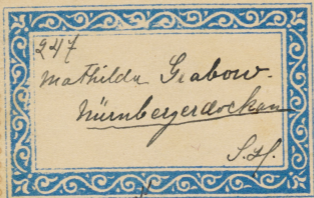 247
Mathilda Grabow.
Nürnbergerdockan
S. H.